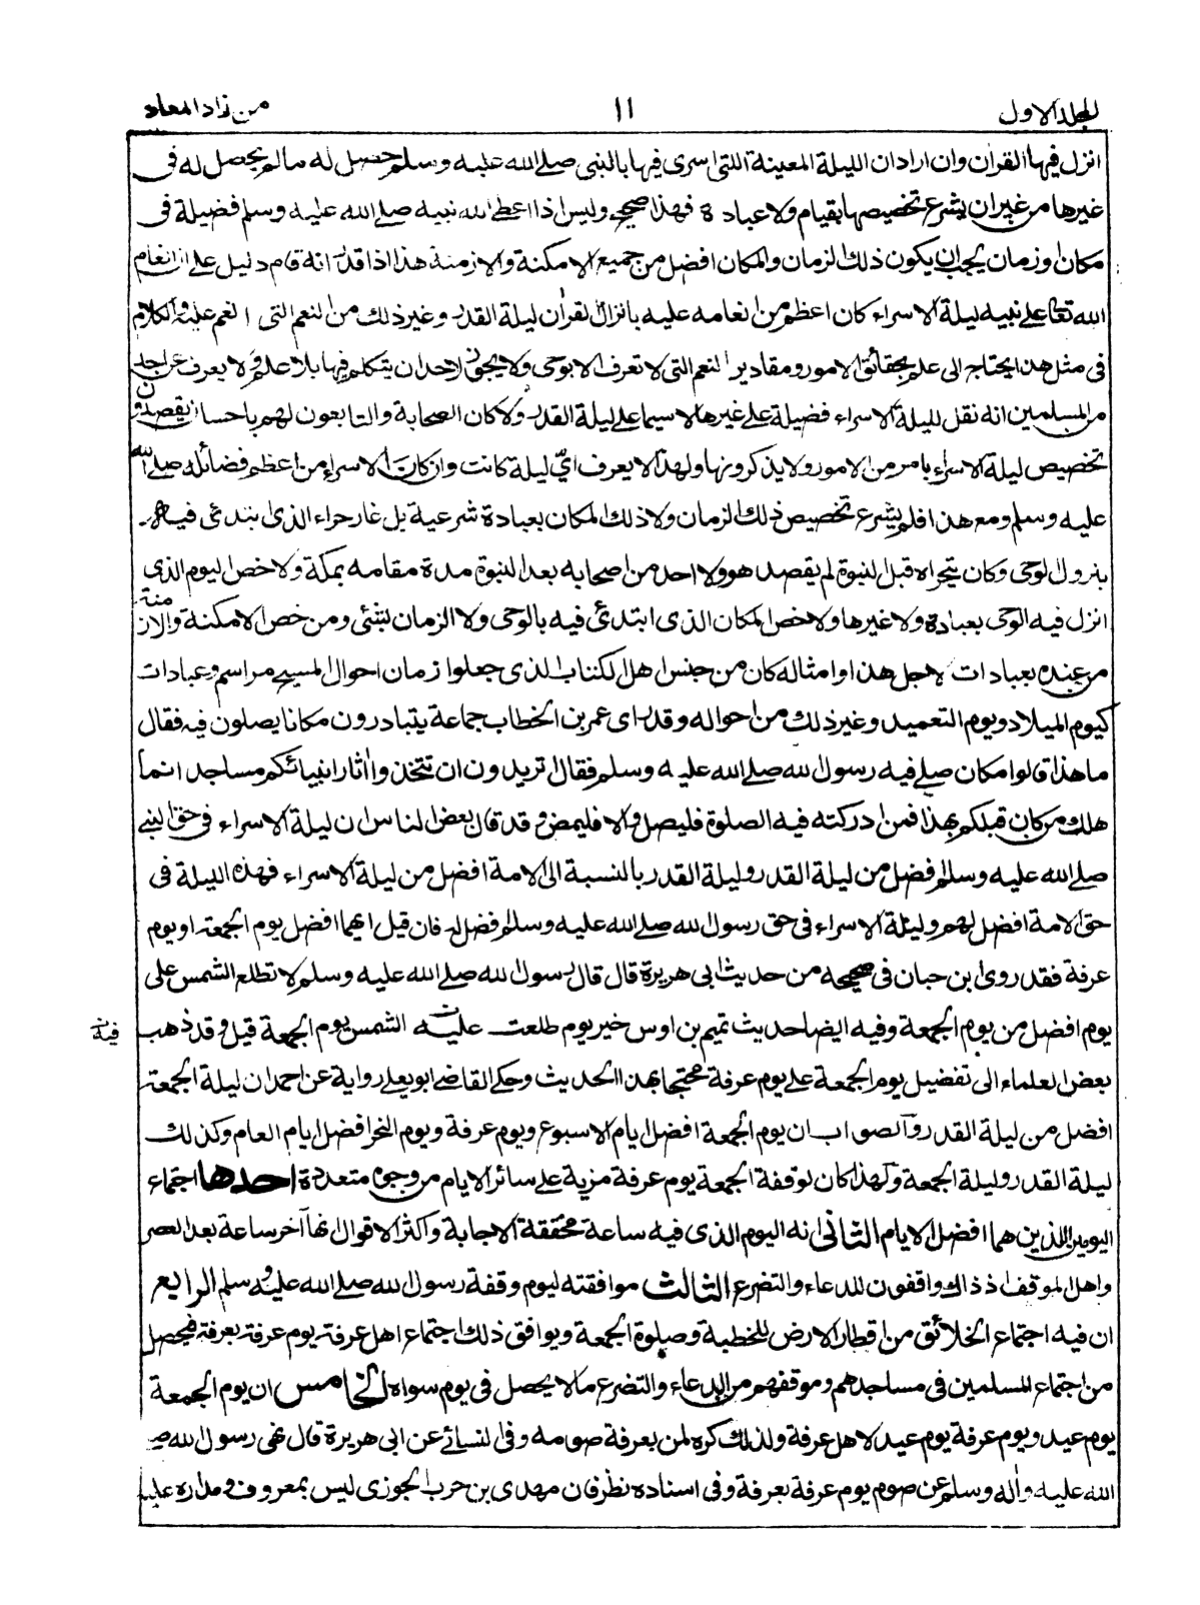 المجلد الاول ١١ من زاد المعاد
انزل فيها القرآن وان اراد ان الليلة المعينة اللتى اسرى فيها بالنبى صلے الله عليه وسلم حصل له مالم يحصل له فى
غيرها من غير ان يشرع تخصيصها بقيام ولا عبادة فهذا صحيح وليس اذا اعطے الله نبيه صلے الله عليه وسلم فضيلة فى
مكان او زمان يجب ان يكون ذلك الزمان والمكان افضل من جميع الامكنة والازمنة هذا اذا قدر انه قام دليل علے ان انعام
الله تعا علے نبيه ليلة الاسراء كان اعظم من انعامه عليه بانزال القرآن ليلة القدر وغير ذلك من النعم التى انعم عليه والكلام
فى مثل هذا يحتاج الى علم بحقائق الامور ومقادير النعم التى لا تعرف الا بوحى ولا يجوز لاحد ان يتكلم فيها بلا علم ولا يعرف عن احد
من المسلمين انه نقل لليلة الاسراء فضيلة علے غيرها لا سيما علے ليلة القدر ولا كان الصحابة والتابعون لهم باحسان يقصدون
تخصيص ليلة الاسراء بامر من الامور ولا يذكرونها ولهذا لا يعرف اىّ ليلة كانت وان كان الاسراء من اعظم فضائله صلے الله
عليه وسلم ومع هذا فلم يشرع تخصيص ذلك الزمان ولا ذلك المكان بعبادة شرعية بل غار حراء الذى ابتدئ فيه
بنزول الوحى وكان يتحراه قبل النبوة لم يقصده هو ولا احد من اصحابه بعد النبوة مدة مقامه بمكة ولا خص اليوم الذى
انزل فيه الوحى بعبادة ولا غيرها ولا خص المكان الذى ابتدئ فيه بالوحى ولا الزمان بشئ ومن خص الامكنة والازمنة
من عنده بعبادات لاجل هذا وامثاله كان من جنس اهل الكتاب الذى جعلوا زمان احوال المسيح مراسم وعبادات
كيوم الميلاد ويوم التعميد وغير ذلك من احواله وقد رأى عمر بن الخطاب جماعة يتبادرون مكانا يصلون فيه فقال
ما هذا قالوا مكان صلے فيه رسول الله صلے الله عليه وسلم فقال تريدون ان تتخذوا آثار انبيائكم مساجد انما
هلك من كان قبلكم بهذا فمن ادركته فيه الصلوة فليصل والا فليمض وقد قال بعض الناس ان ليلة الاسراء فى حق النبے
صلے الله عليه وسلم افضل من ليلة القدر وليلة القدر بالنسبة الى الامة افضل من ليلة الاسراء فهذه الليلة فى
حق الامة افضل لهم وليلة الاسراء فى حق رسول الله صلے الله عليه وسلم افضل له فان قيل ايهما افضل يوم الجمعة او يوم
عرفة فقد روى ابن حبان فى صحيحه من حديث ابى هريرة قال قال رسول الله صلے الله عليه وسلم لا تطلع الشمس على
يوم افضل من يوم الجمعة وفيه ايضا حديث تميم بن اوس خير يوم طلعت عليه الشمس يوم الجمعة قيل وقد ذهب
بعض العلماء الى تفضيل يوم الجمعة علے يوم عرفة محتجا بهذا الحديث وحكے القاضے ابو يعلے رواية عن احمد ان ليلة الجمعة
افضل من ليلة القدر والصواب ان يوم الجمعة افضل ايام الاسبوع ويوم عرفة ويوم النحر افضل ايام العام وكذلك
ليلة القدر وليلة الجمعة ولهذا كان لوقفة الجمعة يوم عرفة مزية علے سائر الايام من وجوه متعددة احدها اجتماع
اليومين اللذين هما افضل الايام الثانى انه اليوم الذى فيه ساعة محققة الاجابة واكثر الاقوال انها آخر ساعة بعد العصر
واهل الموقف اذ ذاك واقفون للدعاء والتضرع الثالث موافقته ليوم وقفة رسول الله صلے الله عليه وسلم الرابع
ان فيه اجتماع الخلائق من اقطار الارض للخطبة وصلوة الجمعة ويوافق ذلك اجتماع اهل عرفة يوم عرفة بعرفة فيحصل
من اجتماع المسلمين فى مساجدهم وموقفهم من الدعاء والتضرع مالا يحصل فى يوم سواه الخامس ان يوم الجمعة
يوم عيد ويوم عرفة يوم عيد لاهل عرفة ولذلك كره لمن بعرفة صومه وفى النسائے عن ابى هريرة قال نهى رسول الله صلے
الله عليه وآله وسلم عن صوم يوم عرفة بعرفة وفى اسناده نظر فان مهدى بن حرب الجوزى ليس بمعروف ومداره عليه